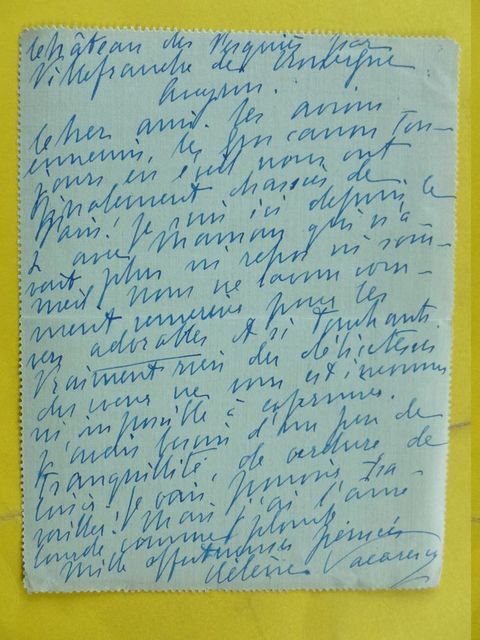 Château des Pesquiès par
Villefranche de Rouergue
Aveyron.
Cher ami. les avions
ennemis, les gros canons tou-
jours en éveil nous ont
finalement chassées de
Paris! Je suis ici depuis le
2 avec Maman qui n'a-
vait plus ni repos ni som-
meil. Nous ne savons com-
ment remercier pour les
vers adorables et si touchants.
Vraiment rien des délicatesses
du coeur ne vous est inconnu
ni impossible à exprimer.
J'avais besoin d'un peu de
tranquillité, de verdure de
Je vais pouvoir tra-
vailler! Mais j'ai l'âme
lourde comme plomb
Mille affectueuses pensées
Hélène Vacaresco